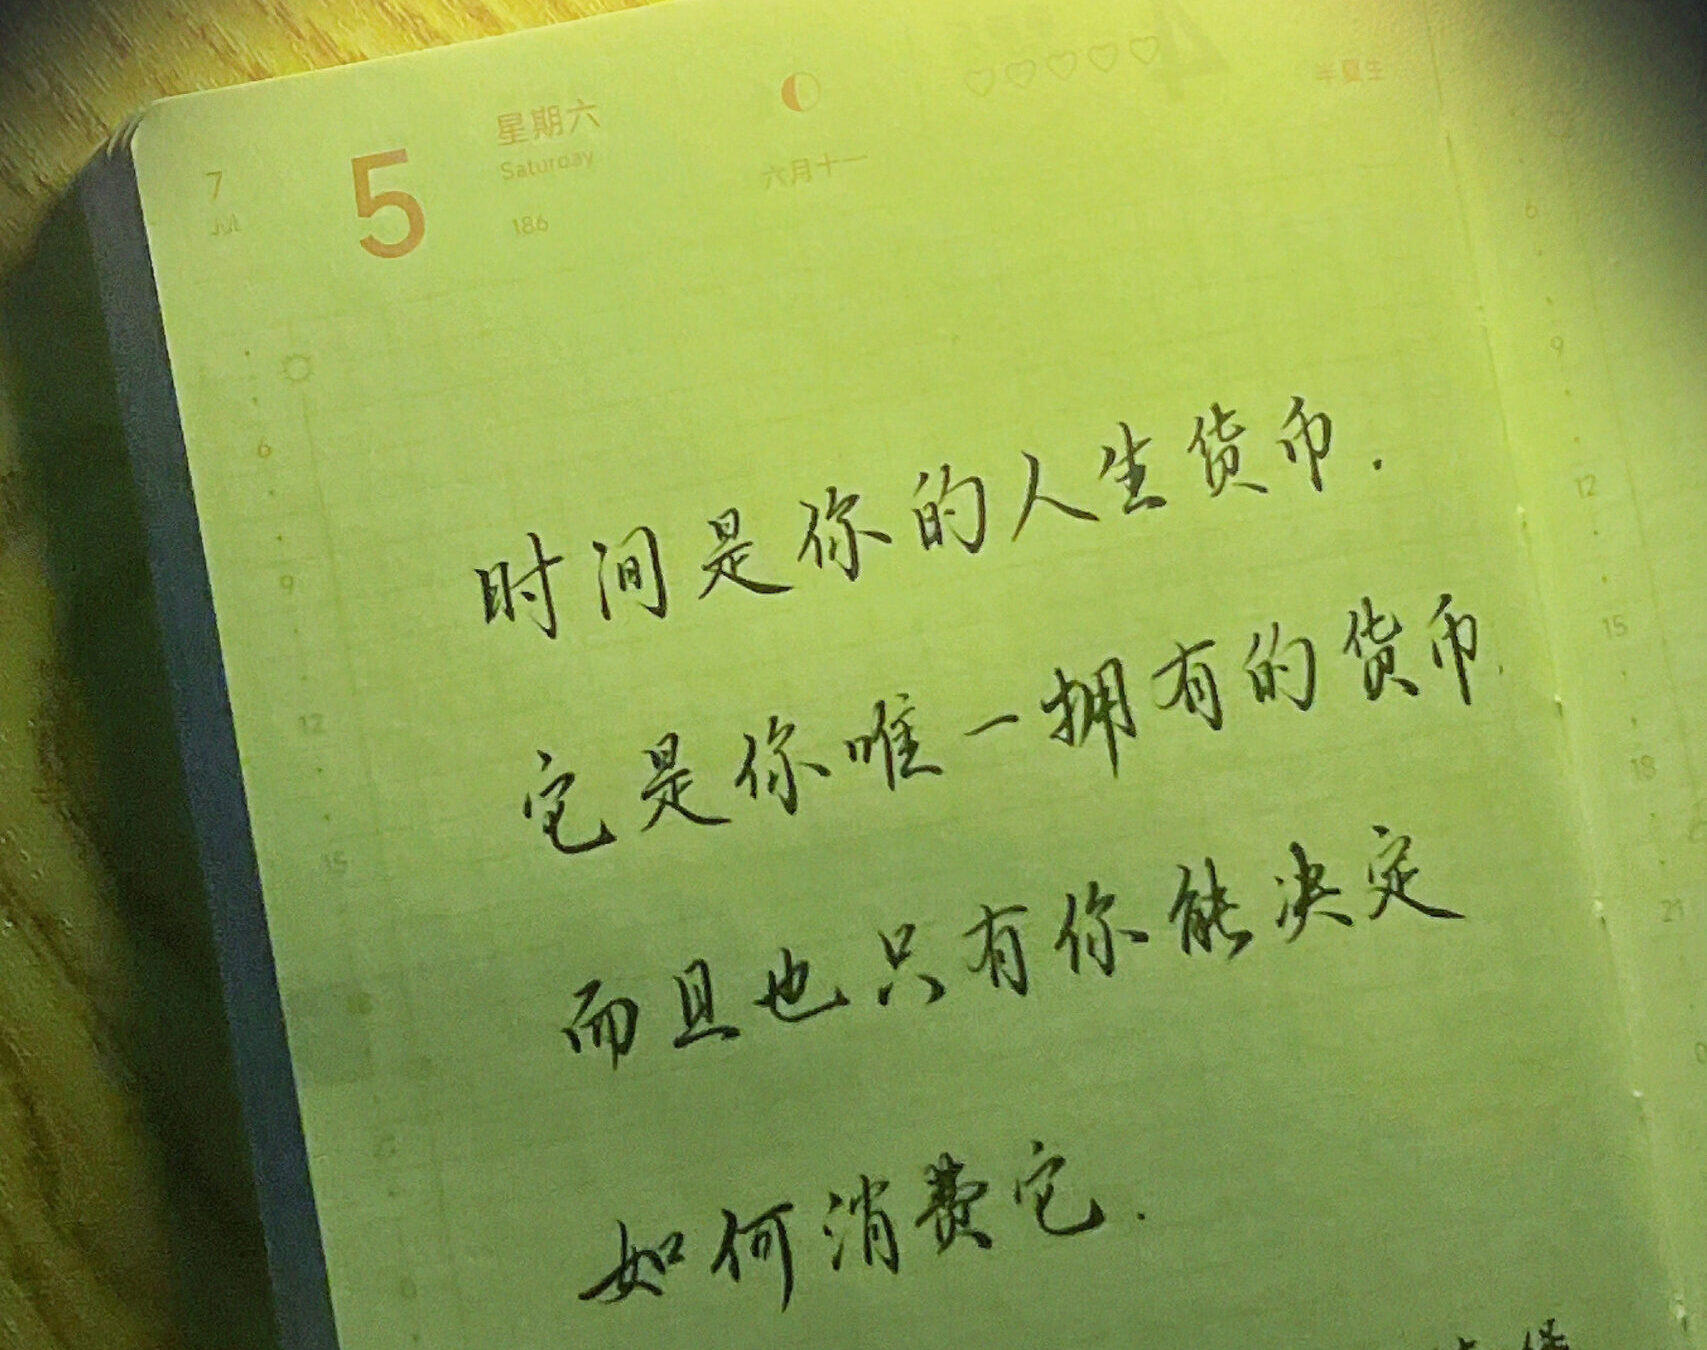 7
Jul
5
星期六
Saturday
186
六月十一
4
半夏生
时间是你的人生货币.
它是你唯一拥有的货币.
而且也只有你能决定
如何消费它.
6
9
12
15
6
9
12
15
18
21